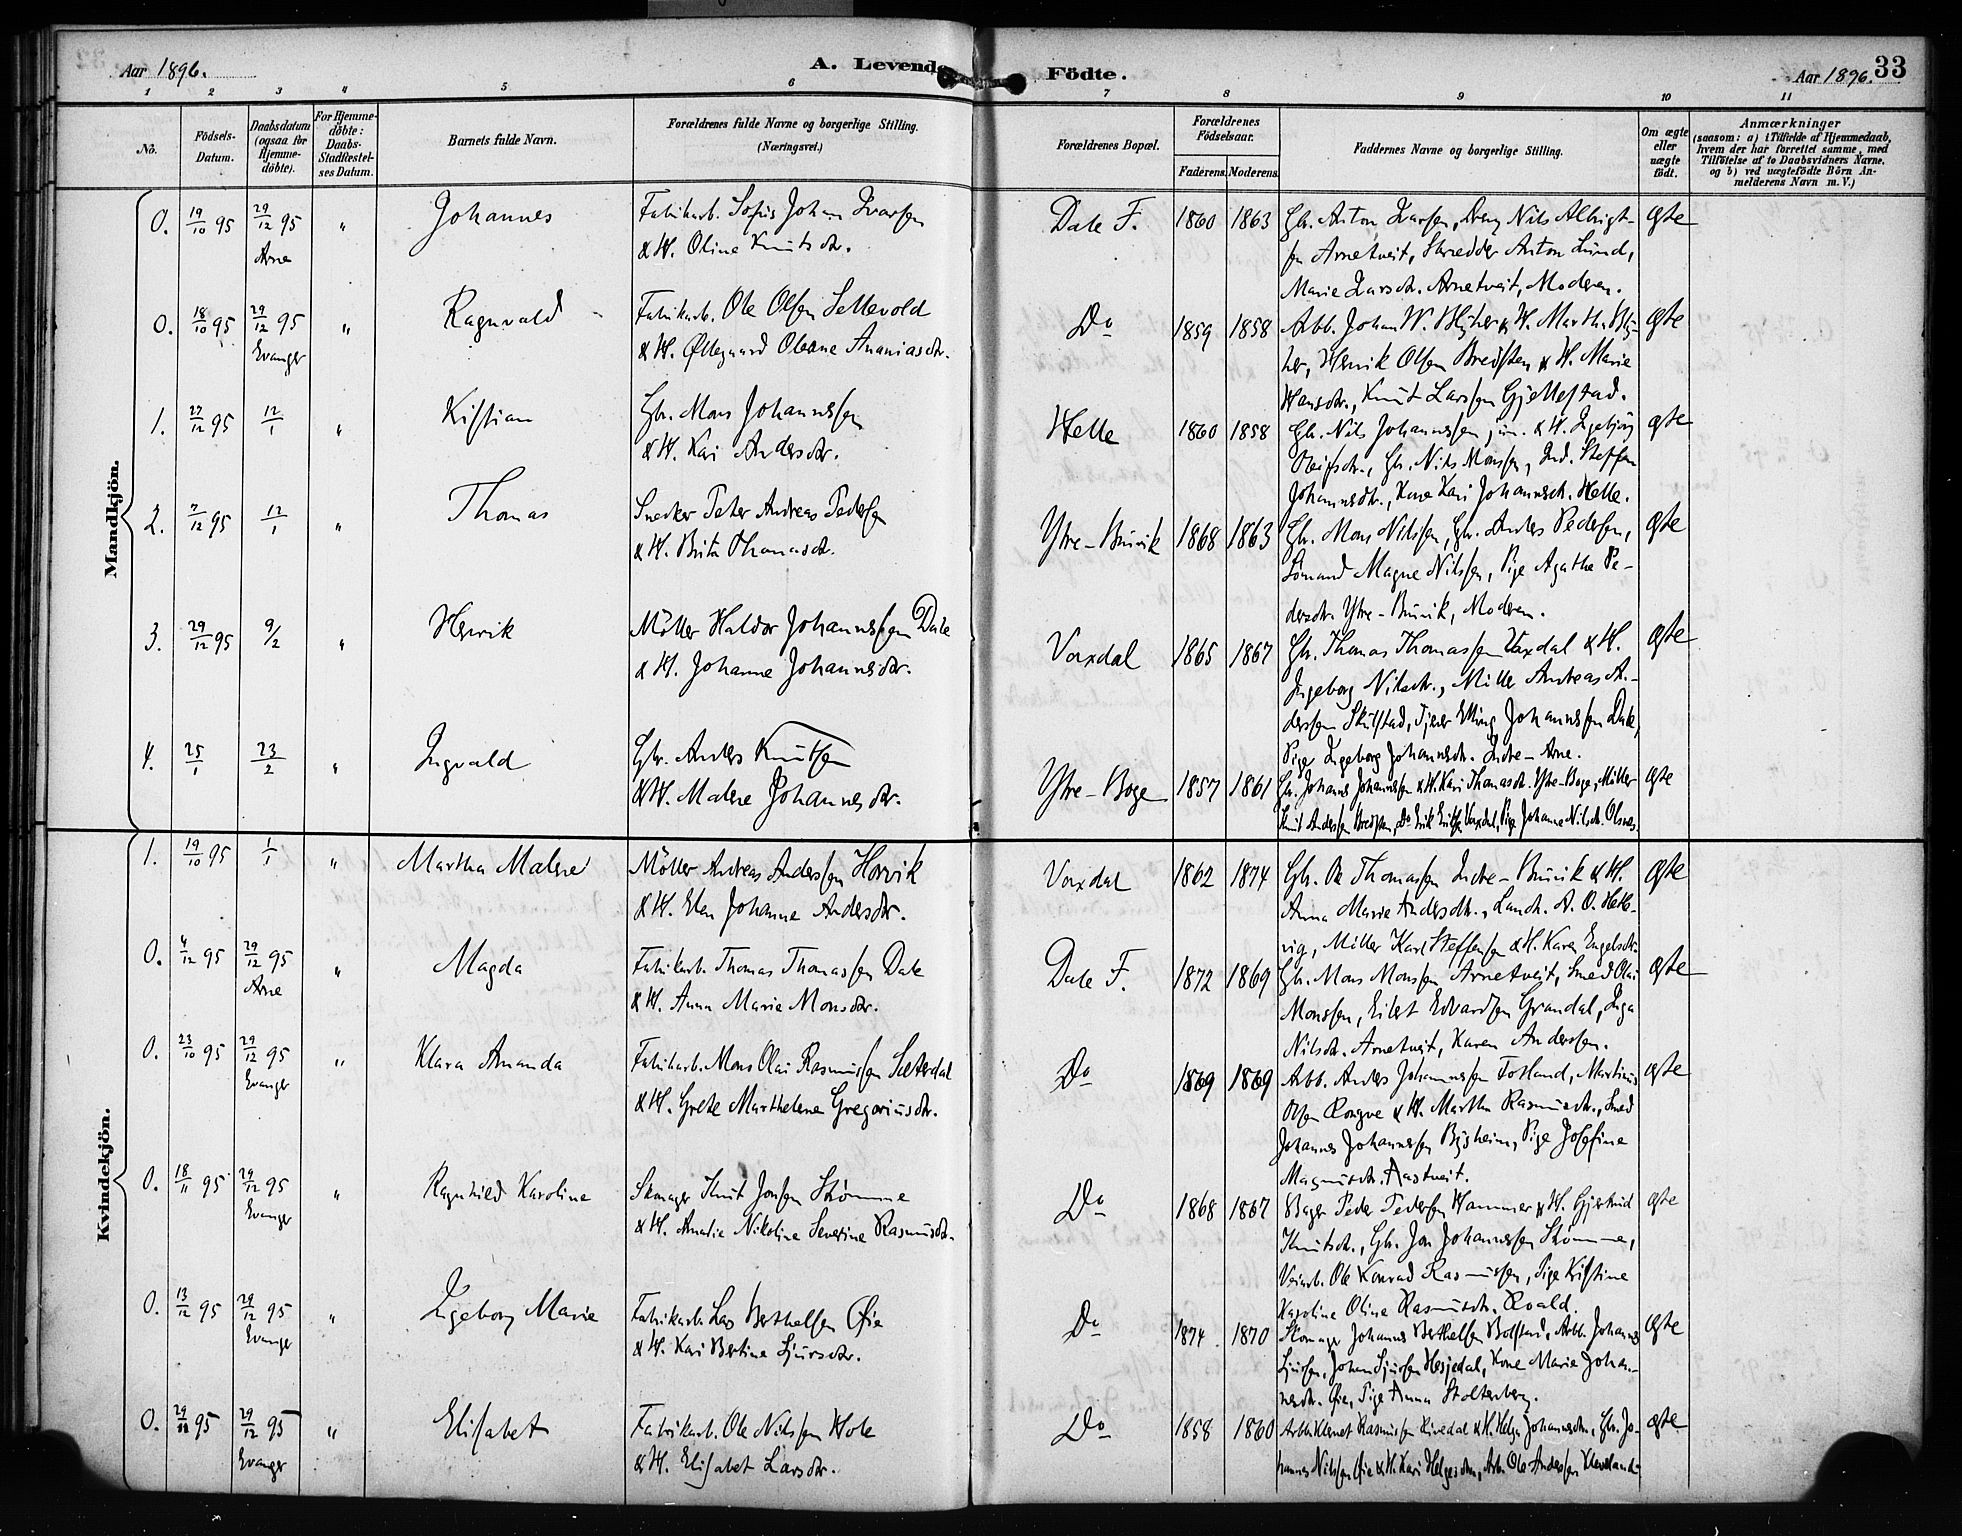 Aar 1896.
A. Levende Födte.
Aar 1896.
33
1 2 3 4 5 6 7 8 9 10 11
No.
Födsels-Datum.
Daabsdatum (ogsaa for Hjemme-döbte).
For Hjemme-döbte: Daabs-Stadfæstel-ses Datum.
Barnets fulde Navn.
Forældrenes fulde Navne og borgerlige Stilling.
(Næringsvei.)
Forældrenes Bopæl.
Forældrenes Födselsaar.
Faderens. Moderens.
Faddernes Navne og borgerlige Stilling.
Om ægte eller uægte födt.
Anmærkninger
(saasom: a) i Tilfælde af Hjemmedaab,
hvem der har forrettet samme, med
Tilföielse af to Daabsvidners Navne,
og b) ved uægtefödte Börn An-
melderens Navn m. V.)
Mandkjön.
0. 19/10 95 29/12 95 Arne " Johannes
Fabrikarb. Sofus Johan Ivarsen
& H. Oline Knutsdtr.
Dale F. 1860 1863
Gbr. Anton Larsen, Dreng Nils Albrigt-
sen Arnetveit, Skrædder Anton Lund,
Marie Larsdtr. Arnetveit, Moderen.
ægte
0. 18/10 95 29/12 95 Evanger " Ragnvald
Fabrikarb. Ole Olsen Sellevold
& H. Øllegaard Oleane Ananiasdtr.
Do 1859 1858
Arb. Johan W. Blyher & H. Martha Bly-
her, Henrik Olsen Bredsten & H. Marie
Hansdtr., Knut Larsen Gjellestad.
ægte
1. 27/12 95 12/1 " Kristian
Gbr. Mons Johannessen
& H. Kari Andersdtr.
Helle 1860 1858
Gbr. Nils Johannessen jun. & H. Ingebjörg
Johannesdtr., Kone Kari Johannesdtr. Helle.
ægte
2. 7/12 95 12/1 " Thomas
Snedker Peter Andreas Pedersen
& H. Brita Thomasdtr.
Ytre-Bruvik 1868 1863
Gbr. Mons Nilssen, Gbr. Anders Pedersen,
Sömand Magne Nilssen, Pige Agathe Pe-
dersdtr. Ytre-Bruvik, Moderen.
ægte
3. 29/12 95 9/2 " Henrik
Möller Haldor Johannessen Dale
& H. Johanne Johannesdtr.
Vaxdal 1865 1867
Gbr. Thomas Thomassen Vaxdal & H.
Ingeborg Nilsdtr., Möller Andreas An-
derssen Skulstad, Tjener Elling Johannessen Dale,
Pige Ingeborg Johannesdtr. Indre-Arne.
ægte
4. 25/1 23/2 " Ingvald
Gbr. Anders Knutsen
& H. Malene Johannesdtr.
Ytre-Boge 1857 1861
Gbr. Johannes Johannessen & H. Kari Thomasdtr. Ytre-Boge, Möller
Knut Andersen Bredsten, Do Erik Eriksen Vaxdal, Pige Johanne Nilsdtr. Olsnes.
ægte
Kvindekjön.
1. 19/10 95 1/1 " Martha Malene
Möller Andreas Anderssen Horvik
& H. Elen Johanne Andersdtr.
Vaxdal 1862 1874
Gbr. Ole Thomassen Indre-Bruvik & H.
Anna Marie Andersdtr., Landh. A. O. Helle-
vig, Möller Karl Steffensen & H. Karen Engelsdtr.
ægte
0. 4/12 95 29/12 95 Arne " Magda
Fabrikarb. Thomas Thomassen Dale
& H. Anna Marie Monsdtr.
Dale F. 1872 1869
Gbr. Mons Monssen Arnetveit, Smed Olai
Monssen, Eilert Edvardsen Grandal, Inga
Nilsdtr. Arnetveit, Karen Andersen.
ægte
0. 23/10 95 29/12 95 Evanger " Klara Amanda
Fabrikarb. Mons Olai Rasmussen Sæterdal
& H. Grete Marthelene Gregoriusdtr.
Do 1869 1869
Arb. Anders Johannessen Fosland, Martinus
Olsen Rongve & H. Martha Rasmusdtr., Smed
Johannes Johannessen Bysheim, Pige Josefine
Magnusdtr. Aastveit.
ægte
0. 18/11 95 29/12 95 Evanger " Ragnhild Karoline
Skomager Knut Jonsen Skömme
& H. Amalie Nikoline Severine Rasmusdtr.
Do 1868 1867
Bager Peder Pedersen Hammer & H. Gjertrud
Knutsdtr., Gbr. Jon Johannessen Skömme,
Veiarb. Ole Konrad Rasmussen, Pige Kristine
Karoline Oline Rasmusdtr. Roald.
ægte
0. 13/12 95 29/12 95 Evanger " Ingeborg Marie
Fabrikarb. Lars Berthelsen Øie
& H. Kari Bertine Sjursdtr.
Do 1874 1870
Skomager Johannes Berthelsen Bolstad, Arb. Johannes
Sjursen, Johan Sjursen Hesjedal, Kone Marie Johan-
nesdtr. Øie, Pige Anna Stoltenberg.
ægte
0. 29/11 95 29/12 95 Evanger " Elisabet
Fabrikarb. Ole Nilssen Hole
& H. Elisabet Larsdtr.
Do 1858 1860
Arb. Klemet Rasmussen Rivedal & H. Helga Johannesdtr., Gbr. Jo-
hannes Nilssen Øie & H. Kari Helgesdtr., Arb. Ole Anderssen Kleveland
ægte